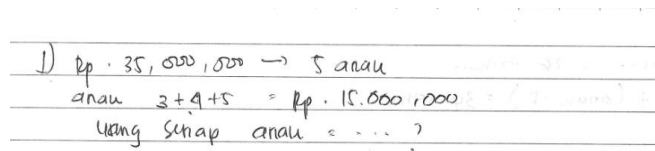 1) Rp. 35,000,000 → 5 anak
anak 3+4+5 = Rp. 15.000,000
Uang setiap anak = .... ?